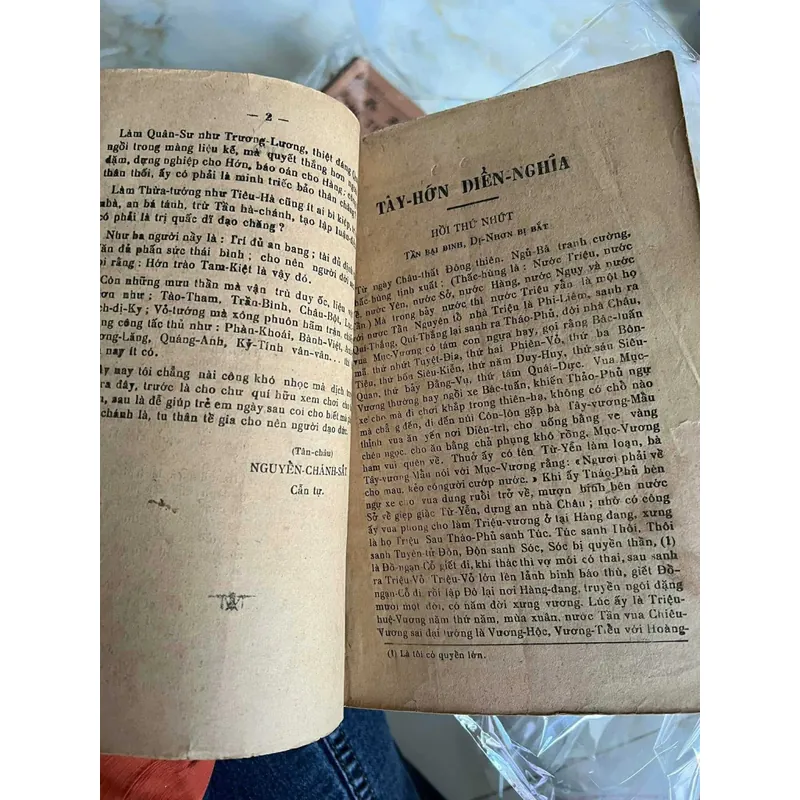 — 2 —
Làm Quân-Sư như Trương-Lương, thiệt đáng
ngồi trong màng liệu kế, mà quyết thắng hơn
dặm, dựng nghiệp cho Hớn, báo oán cho Hàng; công
thân thối, ấy có phải là minh triếc bảo thân chăng?
Làm Thừa-tướng như Tiêu-Hà cũng ít ai bì kiệp,
nhà, an bá tánh, trừ Tần hà-chánh, tạo lập luân-
có phải là trị quốc dĩ đạo chăng?
Như ba người nầy là: Trí đủ an bang; tài đủ
Văn đủ phấn sức thái bình; cho nên người đời
gọi rằng: Hớn trào Tam-Kiệt là vậy đó.
Còn những mưu thần mà vận trù duy ốc, liệu
hơn như: Tào-Tham, Trần-Bình, Châu-Bột,
ch-dị-Ky; Vỏ-tướng mà xông phuôn hãm trận,
ng công tắc thủ như: Phàn-Khoái, Bành-Việt,
ng-Lăng, Quảng-Anh, Kỷ-Tính vân-vân...
nay ít có.
y nay tôi chẳng nài công khó nhọc mà dịch
ra đây, trước là cho chư quí hữu xem chơi cho
n, sau là để giúp trẻ em ngày sau coi cho biết mà
chánh là, tu thân tề gia cho nên người đạo đức.
(Tân-châu)
NGUYỄN-CHÁNH-SẮT
Cẩn tự.
TÂY-HỚN DIỄN-NGHĨA
HỒI THỨ NHỨT
TẦN ĐẠI BINH, DỊ-NHƠN BỊ BẮT
Từ ngày Châu-thất Đông thiên. Ngũ-Bá tranh cường,
Thắc-hùng tịnh xuất: (Thắc-hùng là: Nước Triệu, nước
nước Yên, nước Sở, nước Hàng, nước Ngụy và nước
Tần) Mà trong bảy nước thì nước Triệu vẫn là một họ
với nước Tần Nguyên tổ nhà Triệu là Phi-Liêm, sanh ra
Quí-Thắng, Quí-Thắng lại sanh ra Tháo-Phủ, đời nhà Châu,
vua Mục-Vương có tám con ngựa hay, gọi rằng Bác-tuấn
thứ nhứt Tuyệt-Địa, thứ hai Phiên-Vỏ, thứ ba Bôn-
Tiêu, thứ bốn Siêu-Kiển, thứ năm Duy-Huy, thứ sáu Siêu-
Quan, thứ bảy Đằng-Vụ, thứ tám Quái-Dực. Vua Mục-
Vương thường hay ngồi xe Bác-tuấn, khiến Tháo-Phủ ngự
xe cho mà đi chơi khắp trong thiên-hạ, không có chỗ nào
mà chẳng đến, đi đến núi Côn-lôn gặp bà Tây-vương-Mẫu
thỉnh vua ăn yến nơi Diêu-trì, cho uống bằng ve vàng
chén ngọc, cho ăn bằng chả phụng khô rồng, Mục-Vương
ham vui quên về. Thuở ấy có tên Từ-Yển làm loạn, bà
Tây-vương Mẫu nói với Mục-Vương rằng: «Ngươi phải về
cho mau, kẻo có người cướp nước.» Khi ấy Tháo-Phủ bèn
ngự xe cho vua dung ruồi trở về, mượn binh bên nước
Sở về giẹp giặc Từ-Yển, dựng an nhà Châu; nhờ có công
ấy vua phong cho làm Triệu-vương ở tại Hàng đang, xưng
là họ Triệu Sau Tháo-Phủ sanh Túc. Túc sanh Thôi. Thôi
sanh Tuyên-tử Đôn, Đôn sanh Sóc, Sóc bị quyền thần, (1)
là Đồ-ngạn-Cổ giết đi, khi thác thì vợ mới có thai, sau sanh
ra Triệu-Vỏ. Triệu-Vỏ lớn lên lãnh binh báo thù, giết Đồ-
ngạn-Cổ đi, rồi lập Đô lại nơi Hàng-đang, truyền ngôi đặng
mười một đời, có năm đời xưng vương. Lúc ấy là Triệu-
huệ-Vương năm thứ năm, mùa xuân, nước Tần vua Chiêu-
Vương sai đại tướng là Vương-Hộc, Vương-Tiễu với Hoàng-
(1) Là tôi có quyền lớn.